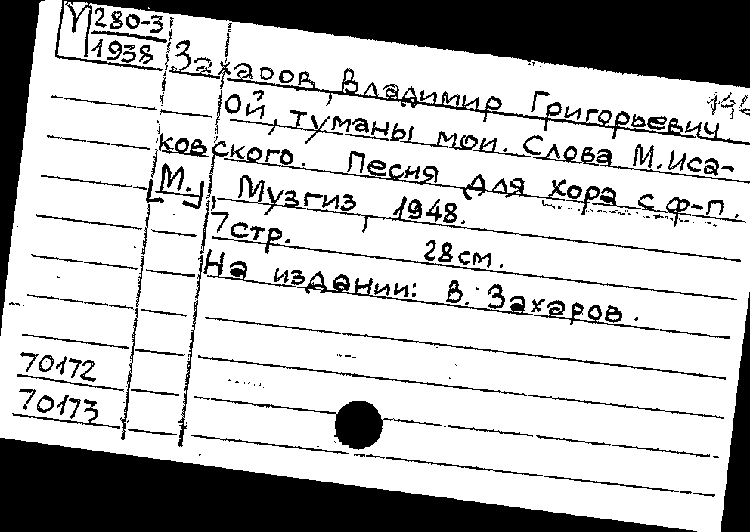 У 280-3
1938
Захаров, Владимир Григорьевич
Ой, туманы мои. Слова М. Иса-
ковского. Песня для хора с ф-п.
[М.], Музгиз, 1948.
7 стр. 28 см.
На издании: В. Захаров.
70172
70173